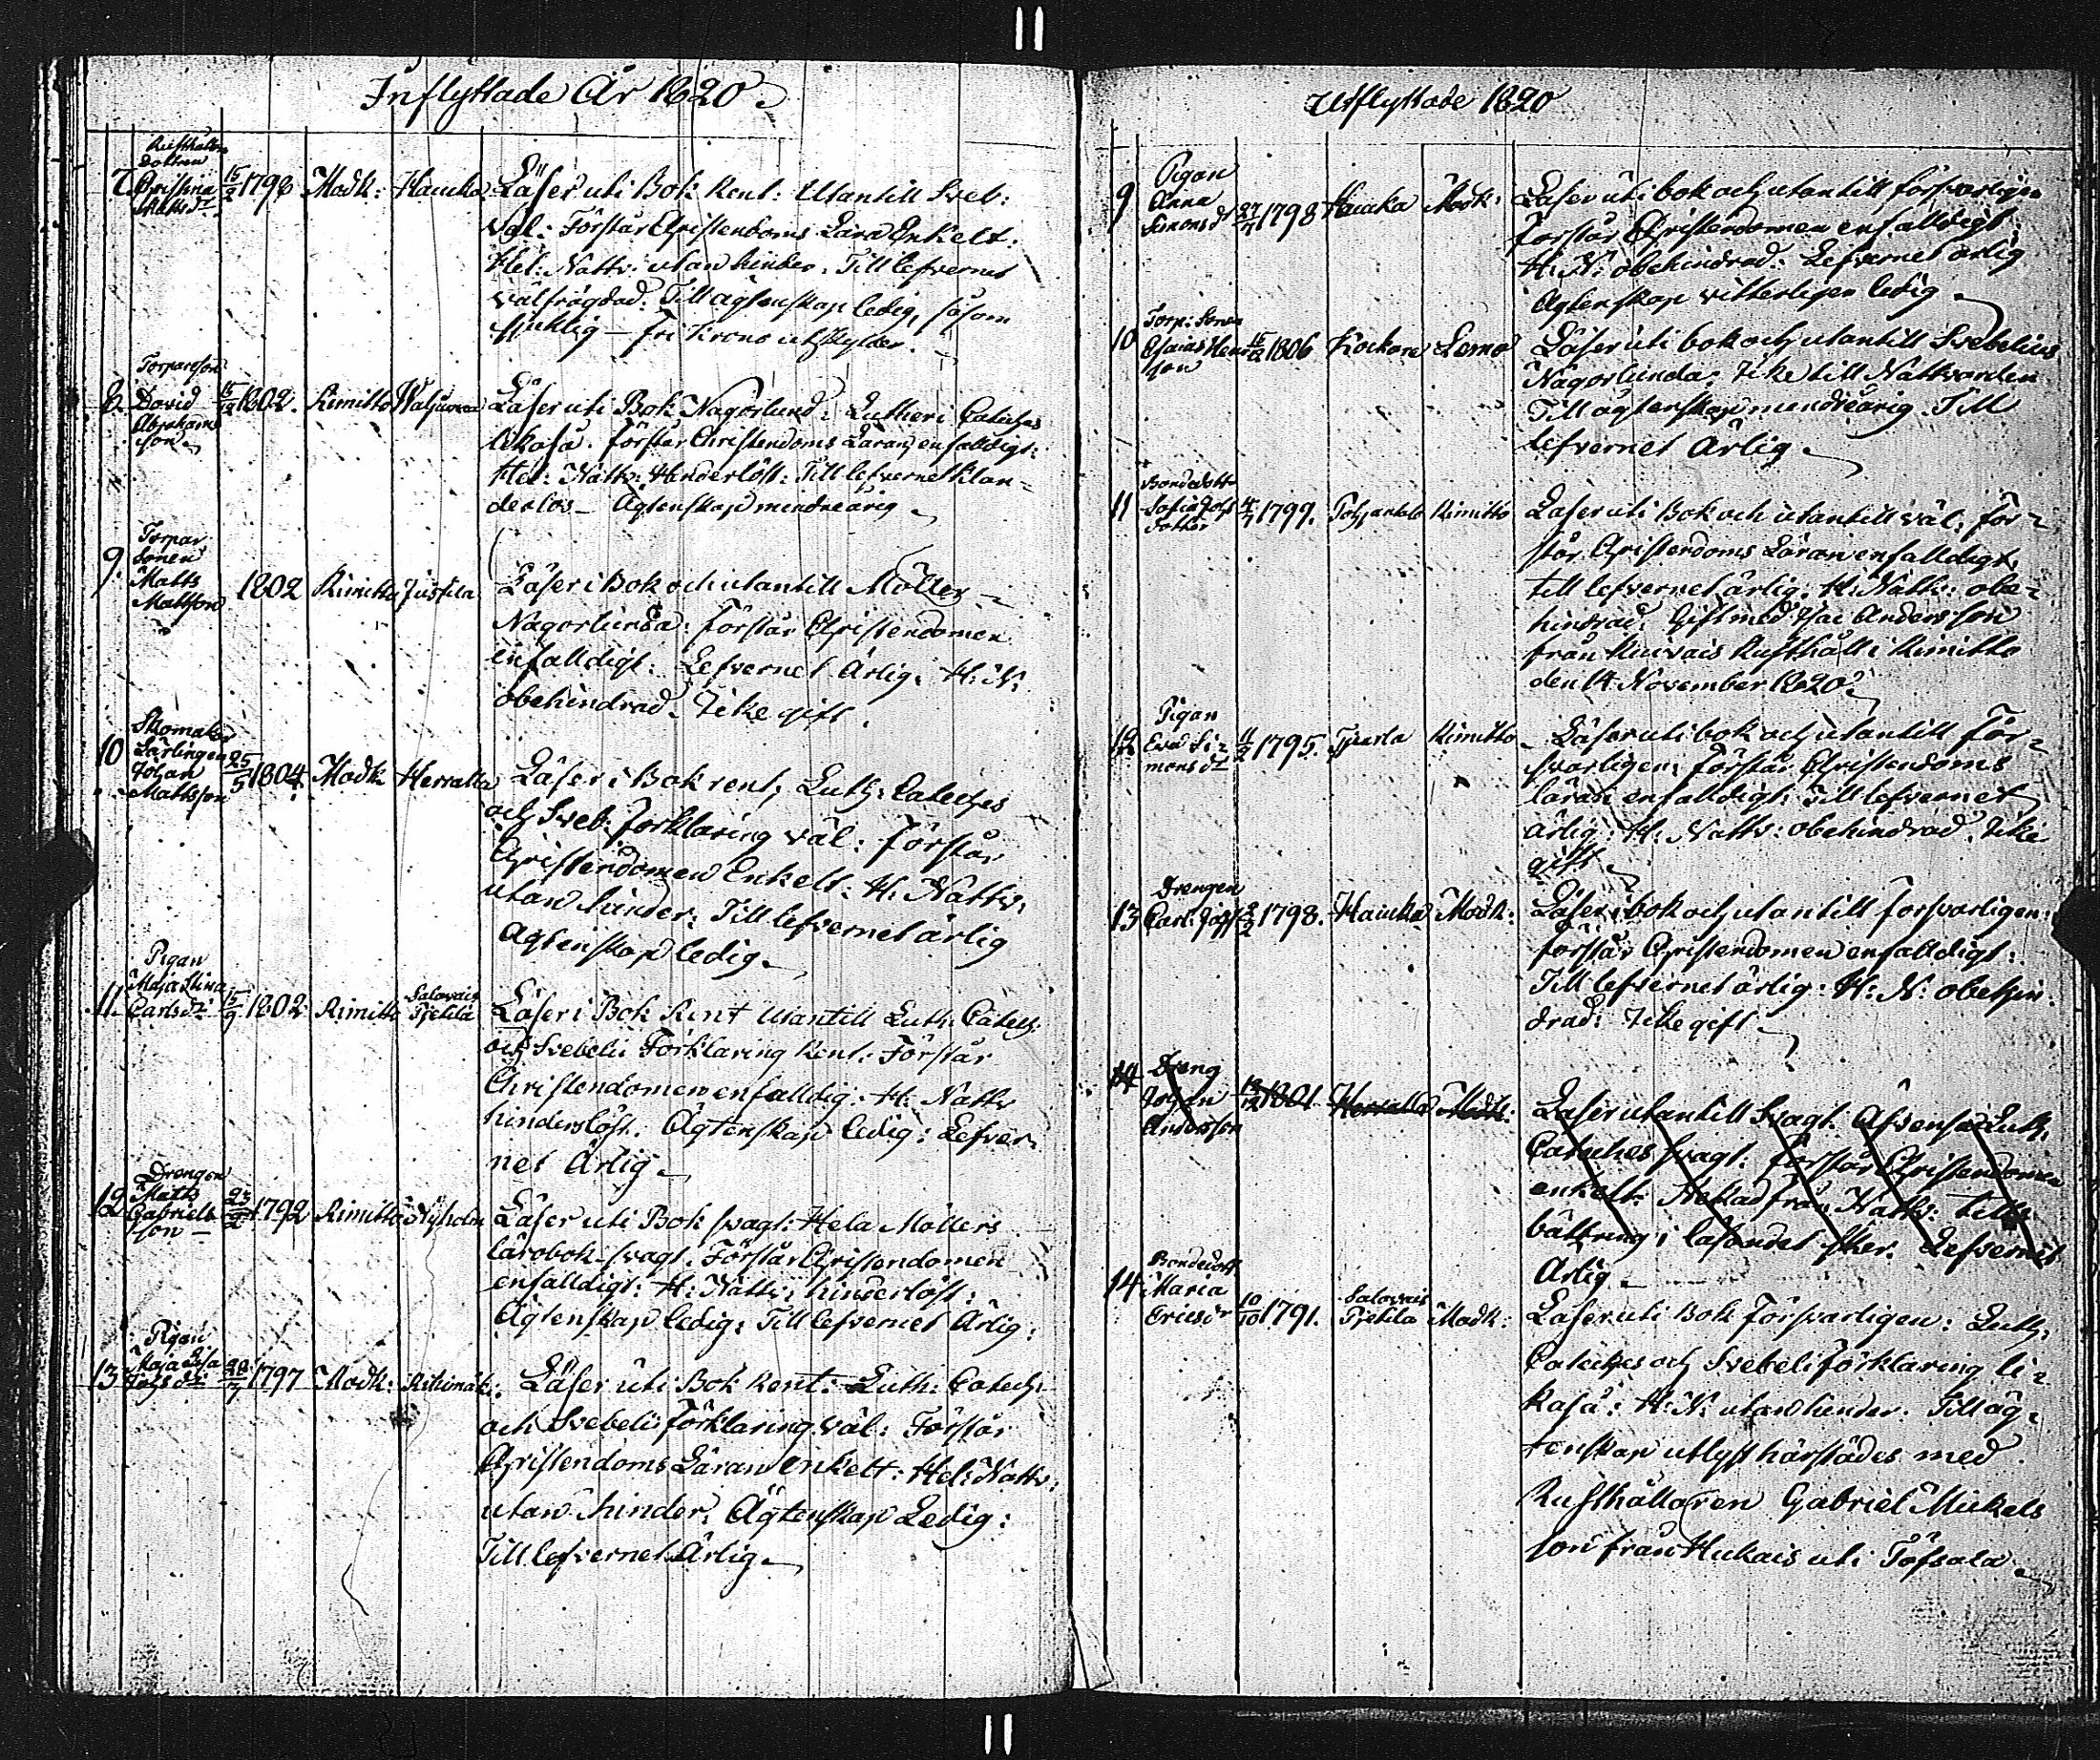 Inflyttade År 1820.
Rusthållare
dottren
7 Christina 15/2 1798 Mask: Haucka Läser uti Bok Rent: Utantill Sveb:
Matts dr
Väl: Förstår Christendoms Lära Enkelt:
Hel: Nattv: utan hinder. Till lefvernet
välfrägdad. Till ägtenskap ledig, såsom
sjuklig — fri Krono utskylder.
Torpareson
8 David 15/12 1802. Rimitto Läser uti Bok Någorlund: Lutheri Cateches
Abrahams
son.
likaså. förstår Christendoms Läran enfalldigt:
Hel: Nattv: Hinderlöst: Till lefvernet klan-
derlös — Ägtenskap mindreårig
Torpar
9. Sonen
Matts 1802 Rimitto Juskila Läser i Bok och utantill Möller
Mattson
Någorlunda: förstår Christendomen
enfalldigt: Lefvernet Ärlig: H: N:
obehindrad. Icke gift.
Skomakar
10 Lärlingen
Johan 25/5 1804 Mask Herralla Läser i Bok rent, Luth: Cateches
Mattsson
och Sveb: förklaring väl: förstår
Christendomen Enkelt: H: Nattv:
utan hinder: Till lefvernet ärlig
Ägtenskap ledig.
Pigan
Maja Stina Salavais
11. Carls dr 15/9 1802 Rimitto Pjetilä Läser i Bok Rent utantill Luth: Catech:
och Svebelii Förklaring Rent. Förstår
Christendomen enfalldig: H: Nattv
hinderslöst. Ägtenskap ledig: Lefver-
net Ärlig.
Drengen
12 Matts
Gabriels 23/2 1792 Rimitto Nyholm Läser uti Bok svagt: Hela Möllers
son —
lärobok svagt. Förstår Christendomen
enfalldigt: H: Nattv: hinderlöst:
Ägtenskap ledig: Till lefvernet Ärlig:
Pigan
Maja Lisa
13 Johs dr 1797 Mask: Läser uti Bok Rent: Luth: Catech:
och Svebelii förklaring väl: Förstår
Christendoms Läran enkelt: Hel: Nattv:
utan hinder: Ägtenskap Ledig:
Till lefvernet Ärlig.
Utflyttade 1820
Pigan
9 Anna
Simons dr 27/7 1798 Haucka Mask: Läser uti bok och utantill försvarligen
förstår Christendomen enfalldigt;
H: N: obehindrad: Lefvernet ärlig
Ägtenskap vitterligen ledig
Torp: Sonen
10 Esaias Henr 1806 Lemo Läser uti bok och utantill Svebelius
son
Någorlunda. Icke till Nattvarden
Till ägtenskap mindreårig. Till
lefvernet Ärlig.
Bondedott
11 Sofia Johs 1799. Rimitto Läser uti Bok och utantill väl; för-
dotter
står Christendoms Läran enfalldigt,
till lefvernet ärlig: H: Nattv: obe-
hindrad. Gift med Isac Andersson
från Rusthåll i Rimitto
den 14 November 1820.
Pigan
12 Eva Si- 11/2 1795. Rimitto Läser uti bok och utantill för-
mons dr
svarligen; förstår Christendoms
läran enfalldigt: Till lefvernet
ärlig: H: Nattv: obehindrad. Icke
gift
Drengen
13 Carl Johss 1798. Haucka Mask: Läser i bok och utantill försvarligen:
förstår Christendomen enfalldigt:
Till lefvernet ärlig: H: N: obehin-
drad: Icke gift
14 Dreng
Johan 13/12 1801. Herralla Mask: Läser utantill Svagt. Äfvenså Luth:
Andersson
Cateches svagt. förstår Christendomen
enkelt. Nekad från Nattv: tills
bättring i läsandet sker. Lefvernet
Ärlig.
Bondedott
14 Maria Salavais
Ericsdr 10/10 1791. Pjetilä Mask: Läser uti Bok försvarligen: Luth:
Cateches och Svebelii förklaring li-
kaså: H: N: utan hinder. Till äg-
tenskap utlyst härstädes med
Rusthållaren Gabriel Mickels
son från Hukais uti Töfsala.